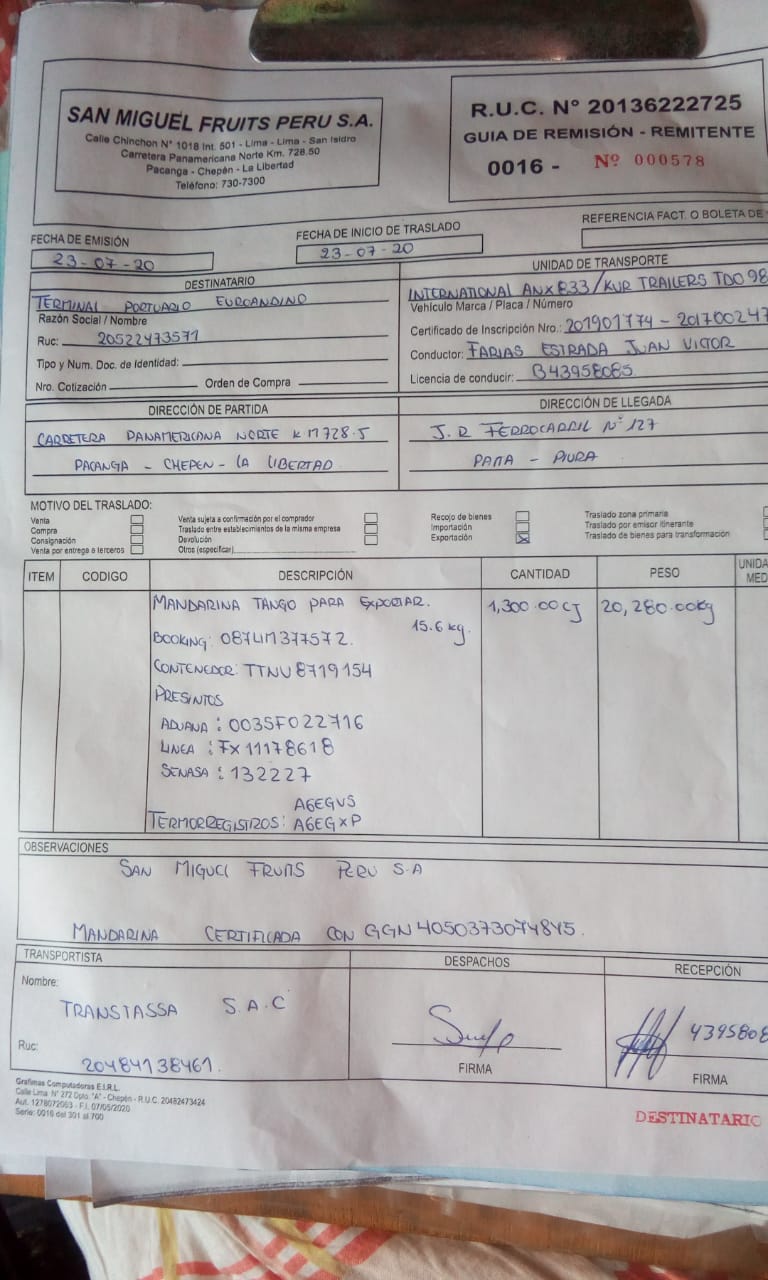 SAN MIGUEL FRUITS PERU S.A.
Calle Chinchon N° 1018 Int. 501 - Lima - Lima - San Isidro
Carretera Panamericana Norte Km. 728.50
Pacanga - Chepén - La Libertad
Teléfono: 730-7300
R.U.C. N° 20136222725
GUIA DE REMISIÓN - REMITENTE
0016 - Nº 000578
FECHA DE EMISIÓN
23-07-20
FECHA DE INICIO DE TRASLADO
23-07-20
REFERENCIA FACT. O BOLETA DE
DESTINATARIO
TERMINAL PORTUARIO EUROANDINO
Razón Social / Nombre
Ruc: 20522473571
Tipo y Num. Doc. de Identidad:
Nro. Cotización Orden de Compra
UNIDAD DE TRANSPORTE
INTERNATIONAL ANX833/KUR TRAILERS TDO98
Vehículo Marca / Placa / Número
Certificado de Inscripción Nro.: 201901774 - 201700247
Conductor: FARIAS ESTRADA JUAN VICTOR
Licencia de conducir: B43958085
DIRECCIÓN DE PARTIDA
CARRETERA PANAMERICANA NORTE KM728.5
PACANGA - CHEPEN - LA LIBERTAD
DIRECCIÓN DE LLEGADA
J.R FERROCARRIL N° 127
PAITA - PIURA
MOTIVO DEL TRASLADO:
Venta
Compra
Consignación
Venta por entrega a terceros
Venta sujeta a confirmación por el comprador
Traslado entre establecimientos de la misma empresa
Devolución
Otros (especificar)
Recojo de bienes
Importación
Exportación
Traslado zona primaria
Traslado por emisor itinerante
Traslado de bienes para transformación
ITEM CODIGO DESCRIPCIÓN CANTIDAD PESO UNIDA
MED
MANDARINA TANGO PARA EXPORTAR. 1,300.00CJ 20,280.00kg
15.6 kg.
BOOKING: 087LIM377572.
CONTENEDOR: TTNU 8719154
PRESINTOS
ADUANA : 0035F022716
LINEA : FX11178618
SENASA : 132227
A6EGVS
TERMORREGISTROS: A6EGXP
OBSERVACIONES
SAN MIGUEL FRUITS PERU S.A
MANDARINA CERTIFICADA CON GGN 4050373074845.
TRANSPORTISTA
Nombre:
TRANSTASSA S.A.C
Ruc:
20484138461.
DESPACHOS
FIRMA
RECEPCIÓN
4395808
FIRMA
Grafimas Computadoras E.I.R.L.
Calle Lima N° 272 Dpto. "A" - Chepén - R.U.C. 20482473424
Aut. 1278072063 - F.I. 07/05/2020
Serie: 0016 del 301 al 700
DESTINATARIO